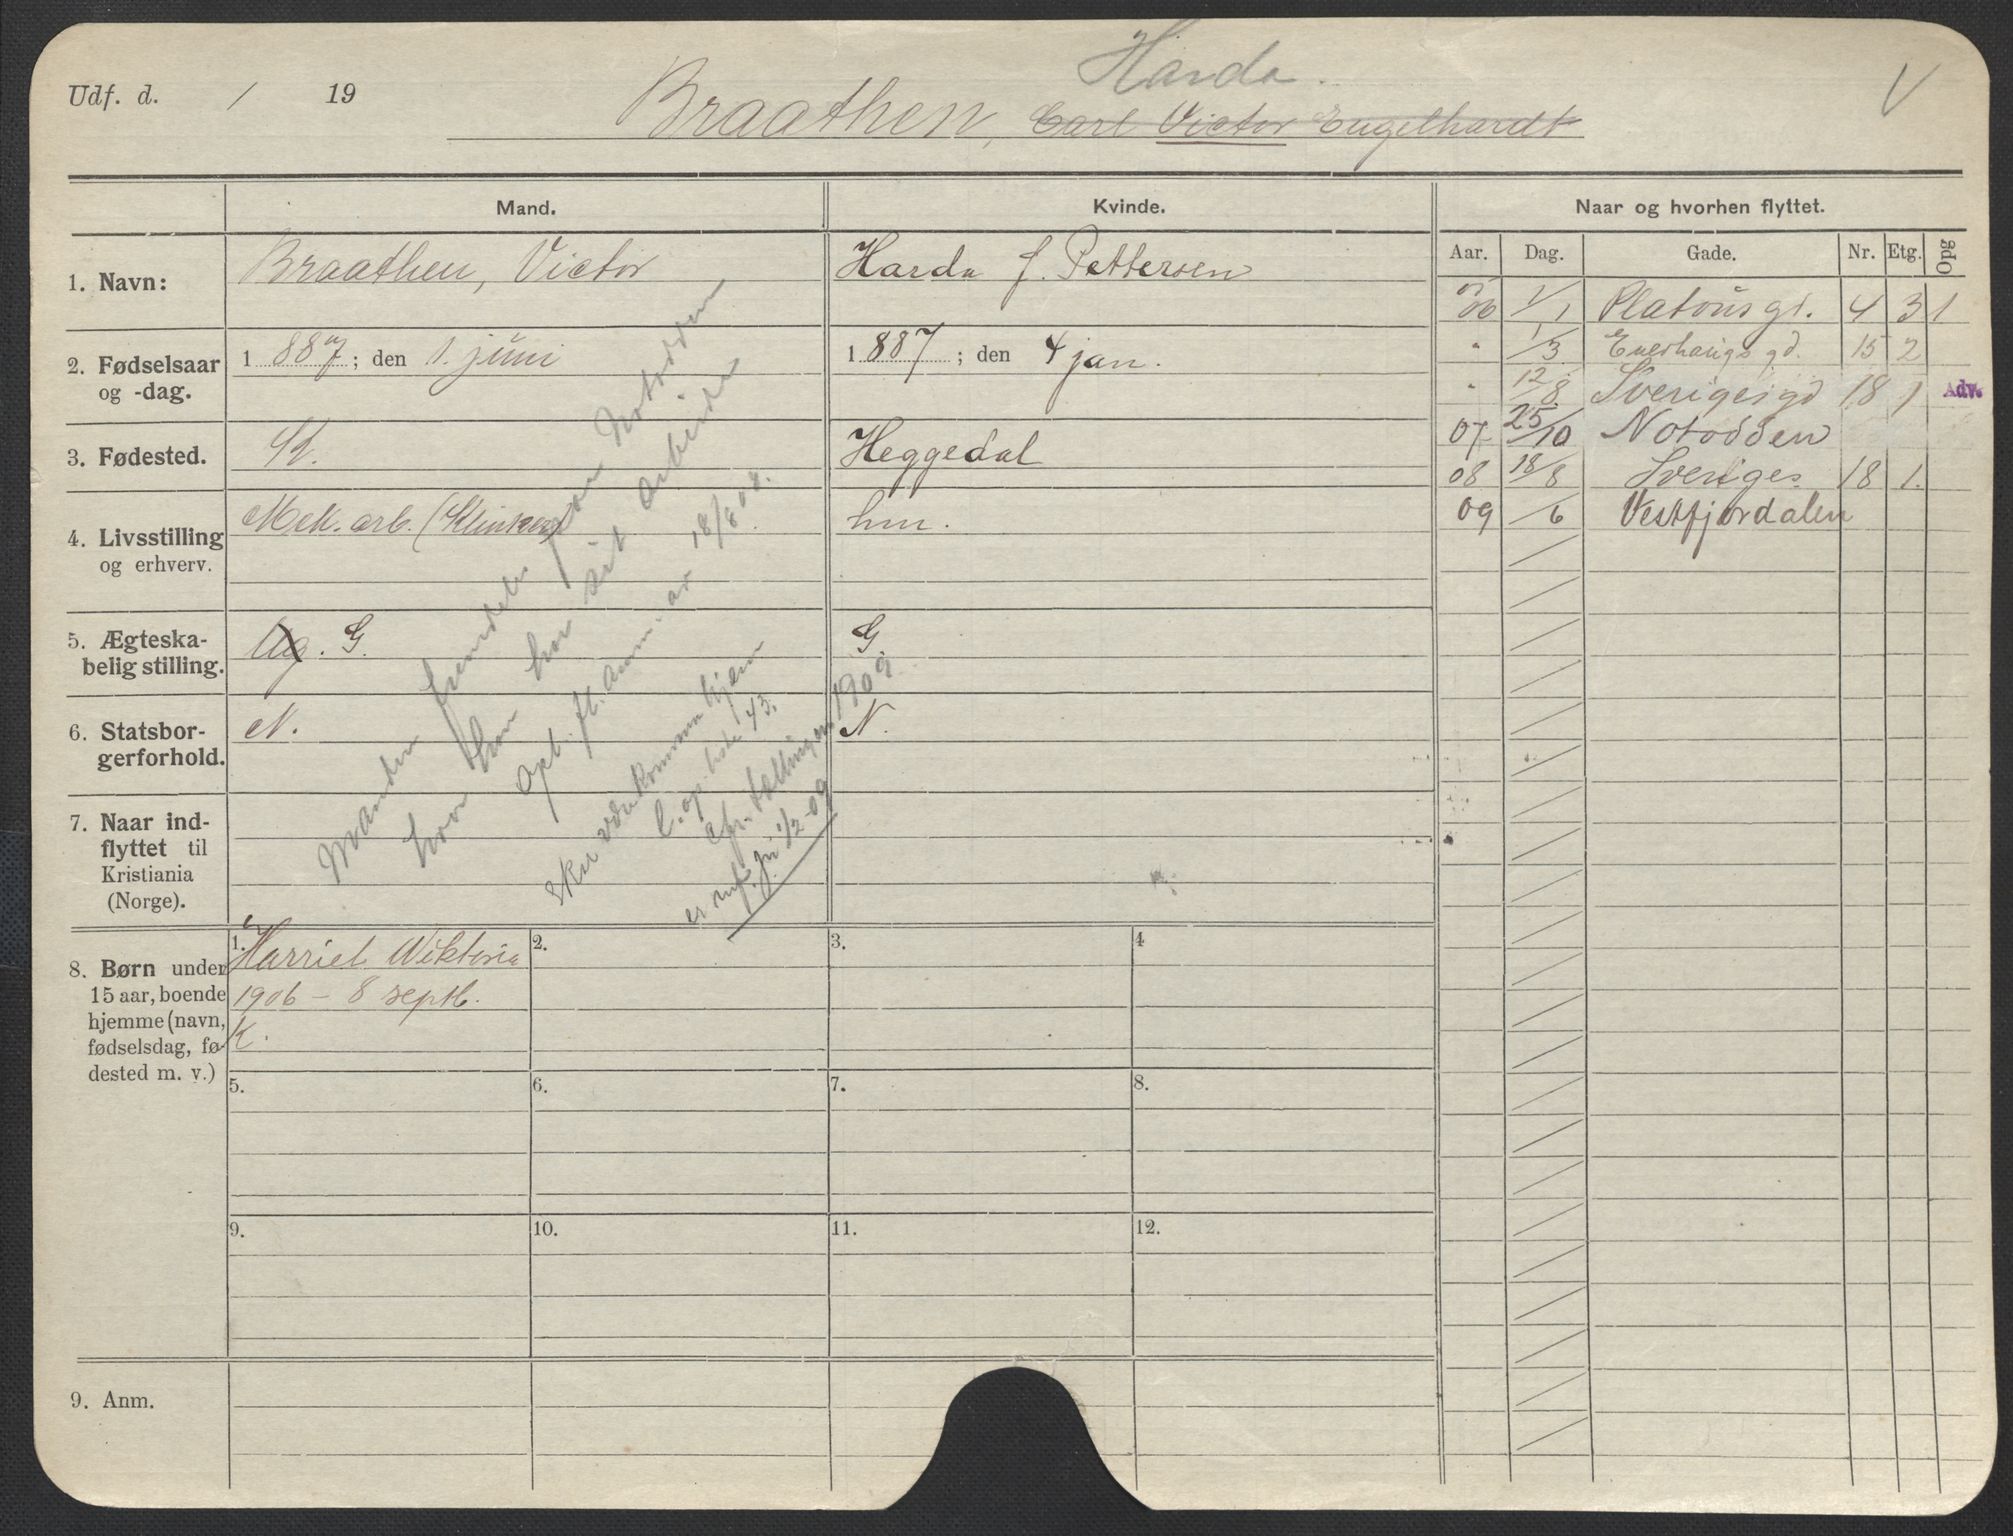 Udf. d. / 19
Harda.
Braathen, Carl Victor Engelhardt
V
Mand.
Kvinde.
Naar og hvorhen flyttet.
Aar. Dag. Gade. Nr. Etg. Opg
1. Navn:
Braathen, Victor
Harda f. Pettersen
2. Fødselsaar
og -dag.
1887; den 1. juni
1887; den 4 jan.
3. Fødested.
Heggedal
4. Livsstilling
og erhverv.
Mek. arb. (Klinker)
hm.
5. Ægteska-
belig stilling.
Ug. G.
G.
6. Statsbor-
gerforhold.
N.
N.
7. Naar ind-
flyttet til
Kristiania
(Norge).
Manden fremdeles paa Notodden
hvor han har sit arbeide
opl. fl. anm. av 18/8 08.
skal være kommen hjem
l. op. liste 43.
efr. tællingen 1909.
1/2-09
05
06 1/1 Platousgt. 4 3 1
" 1/3 Enerhaugsgd. 15 2
" 12/8 Sverigesgd 18 1 Adv.
07 25/10 Notodden
08 18/8 Sveriges. 18 1.
09 /6 Vestfjordalen
8. Børn under
15 aar, boende
hjemme (navn,
fødselsdag, fø
dested m. v.)
1. Harriet Wiktoria
1906 – 8 septb.
K.
2.
3.
4
5.
6.
7.
8.
9.
10.
11.
12.
9. Anm.